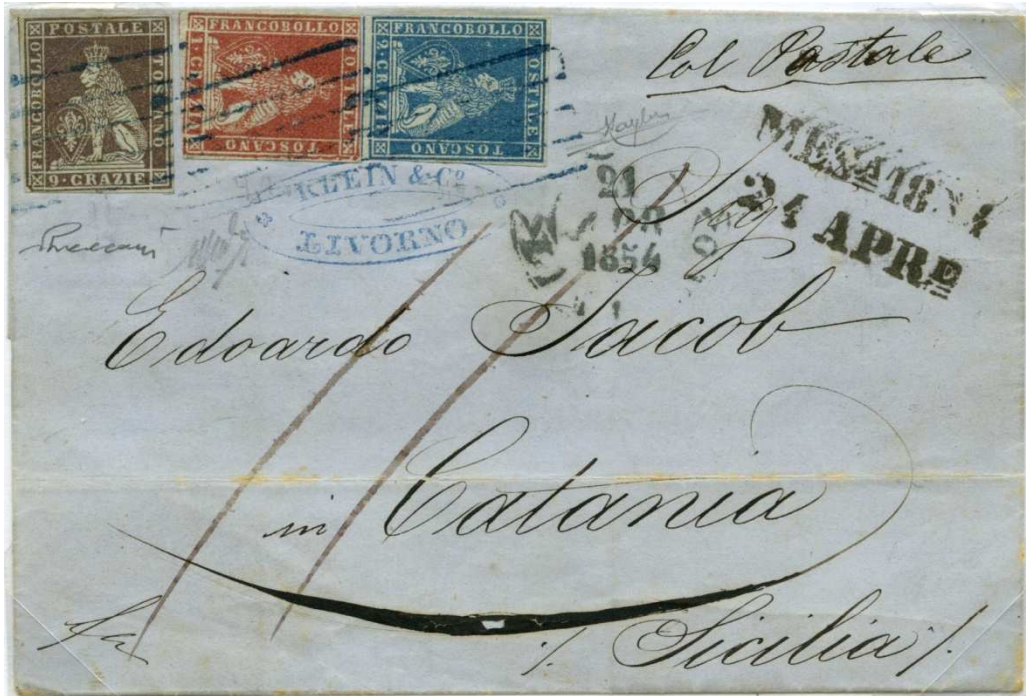 FRANCOBOLLO POSTALE TOSCANO
9·CRAZIE
FRANCOBOLLO POSTALE TOSCANO
1·CRAZIA
FRANCOBOLLO POSTALE TOSCANO
2·CRAZIE
Col Postale
KLEIN & Co.
LIVORNO
21
APR
1854
24 APRE
Sig
Edoardo Jacob
in Catania
Sicilia